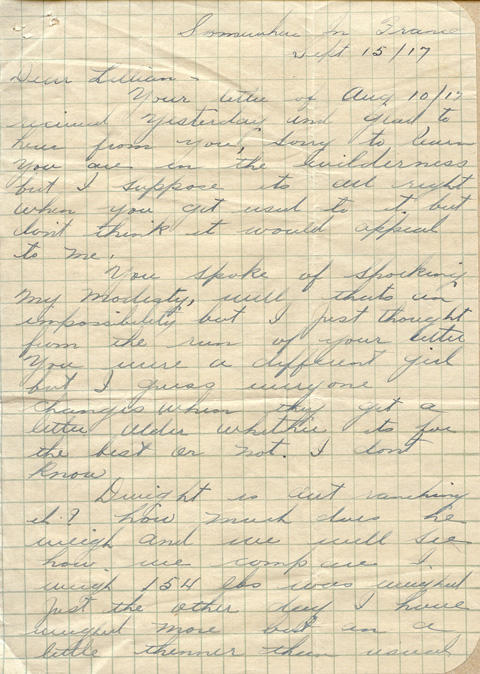 Somewhere In France
Sept 15/17
Dear Lillian -
Your letter of Aug 10/17
received yesterday and glad to
hear from you, sorry to learn
you are in the wilderness
but I suppose its all right
when you get used to it but
dont think it would appeal
to me.
You spoke of shocking
my modesty, well thats an
impossibility but I just thought
from the run of your letter
you were a different girl
but I guess everyone
changes when they get a
little older whether its for
the best or not. I dont
know
Dwight is out ranching
eh? how much does he
weigh and we will see
how we compare I
weigh 154 lbs was weighed
just the other day I have
weighed more but am a
little thinner than usual